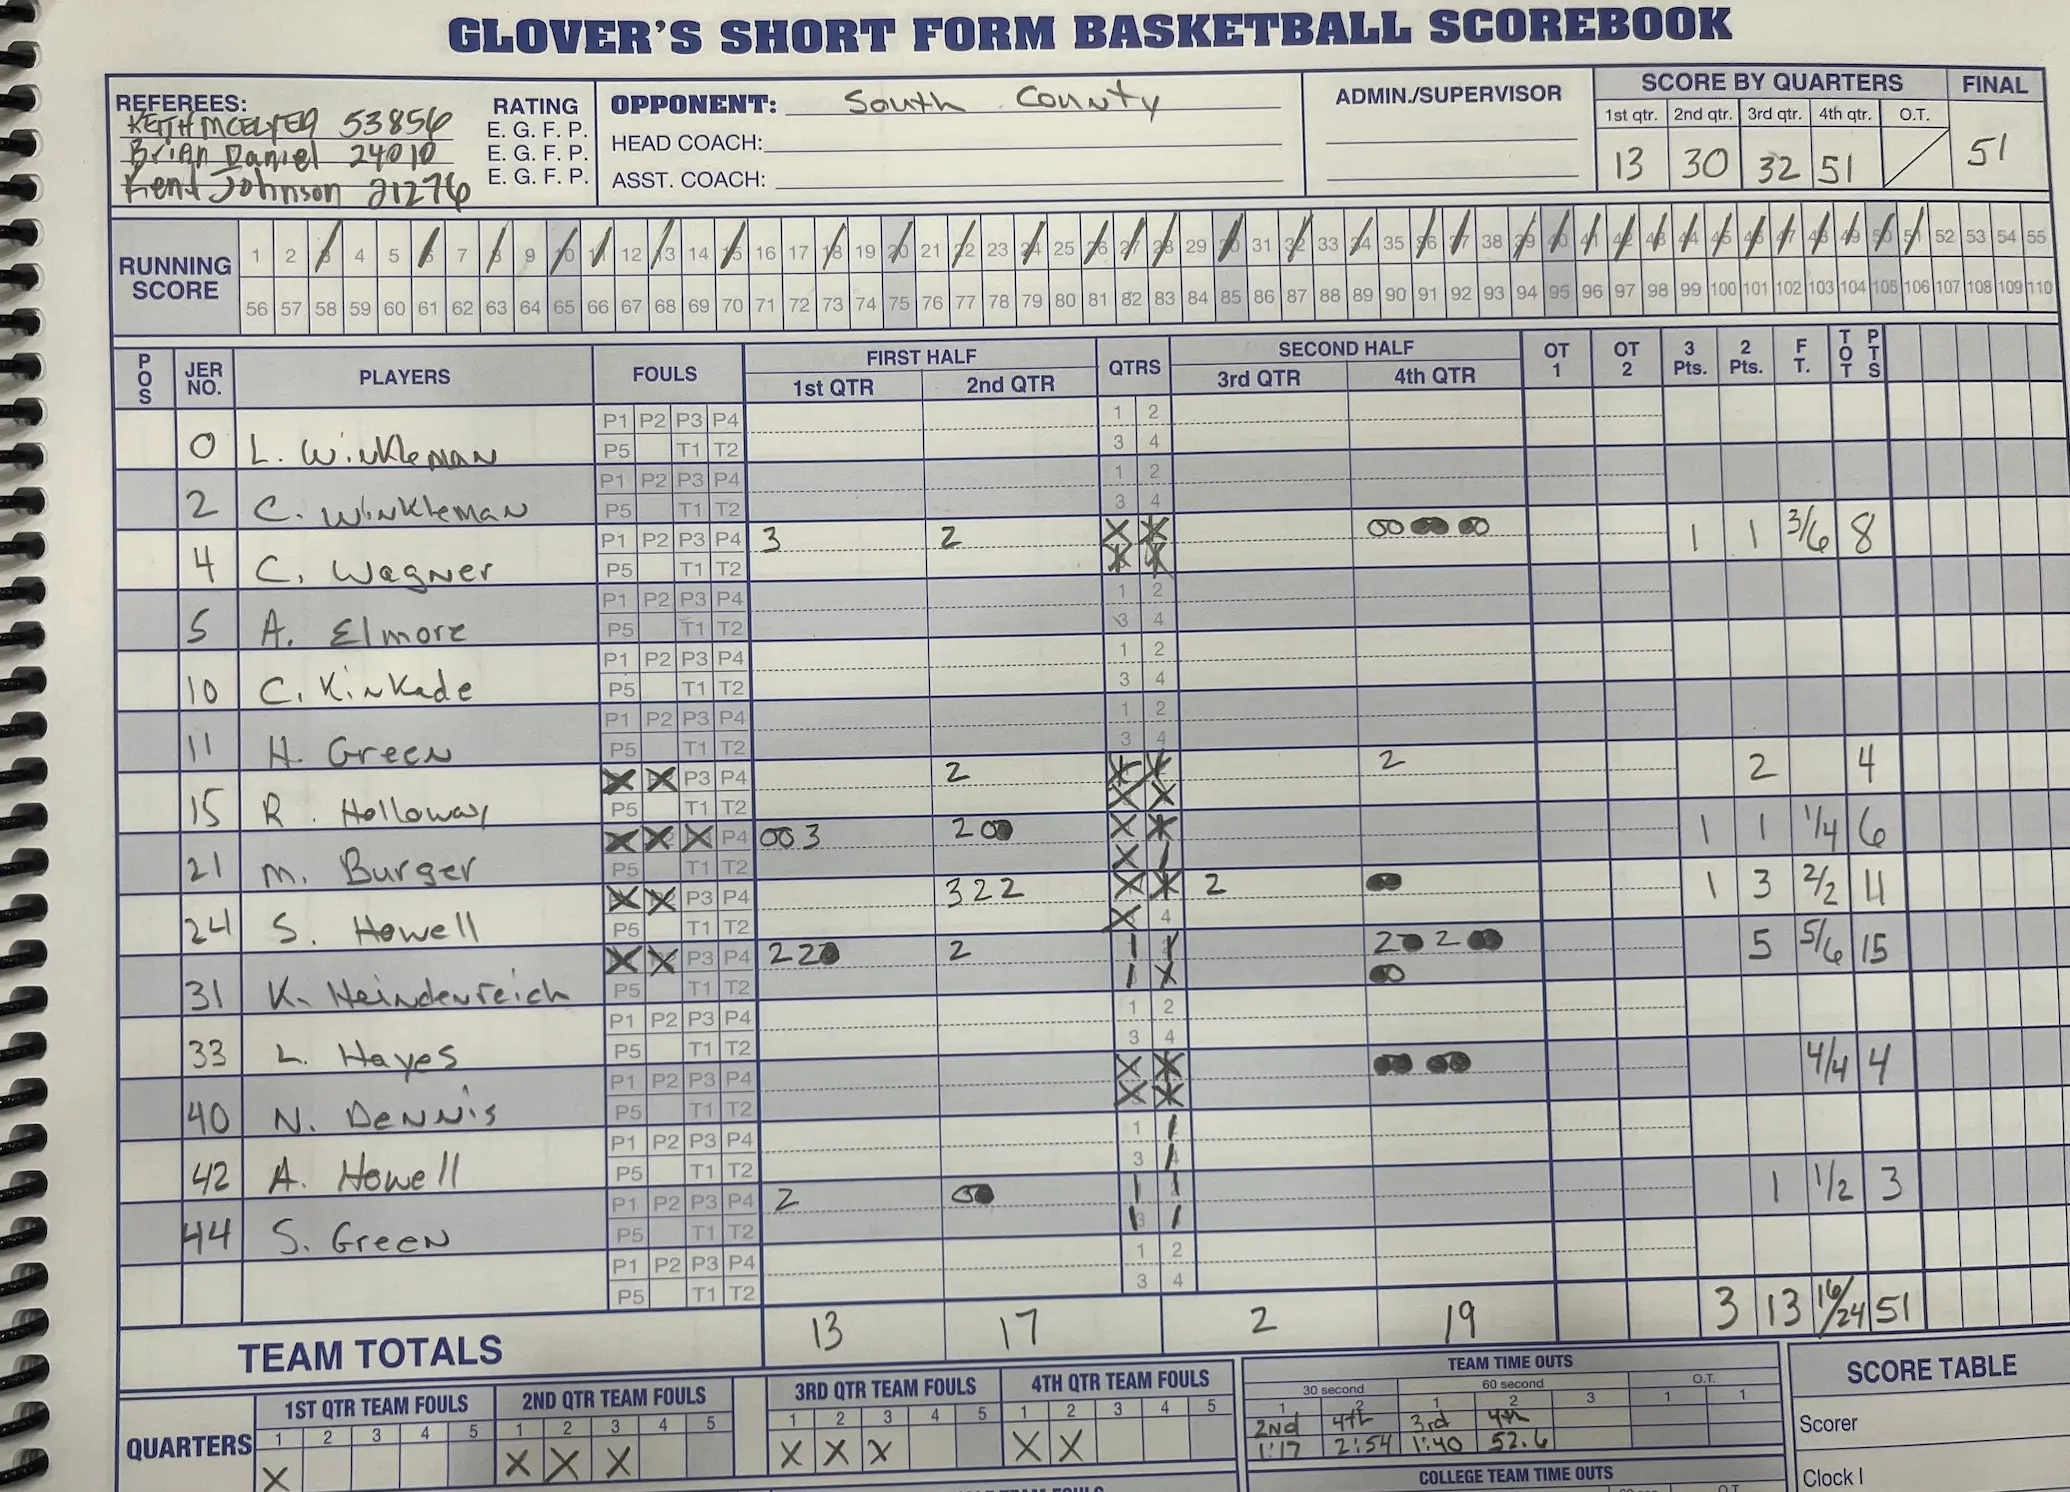 GLOVER'S SHORT FORM BASKETBALL SCOREBOOK
REFEREES: RATING
53856 E. G. F. P.
Brian Daniel 24010 E. G. F. P.
Kent Johnson 21276 E. G. F. P.
OPPONENT: South County
HEAD COACH:
ASST. COACH:
ADMIN./SUPERVISOR
SCORE BY QUARTERS FINAL
1st qtr. 2nd qtr. 3rd qtr. 4th qtr. O.T.
13 30 32 51 51
RUNNING SCORE
1 2 3 4 5 6 7 8 9 10 11 12 13 14 15 16 17 18 19 20 21 22 23 24 25 26 27 28 29 30 31 32 33 34 35 36 37 38 39 40 41 42 43 44 45 46 47 48 49 50 51 52 53 54 55
56 57 58 59 60 61 62 63 64 65 66 67 68 69 70 71 72 73 74 75 76 77 78 79 80 81 82 83 84 85 86 87 88 89 90 91 92 93 94 95 96 97 98 99 100 101 102 103 104 105 106 107 108 109 110
POS JER NO. PLAYERS FOULS FIRST HALF QTRS SECOND HALF OT 1 OT 2 3 Pts. 2 Pts. F T. TOT PTS
1st QTR 2nd QTR 3rd QTR 4th QTR
P1 P2 P3 P4 1 2
0 L. Winkleman P5 T1 T2 3 4
P1 P2 P3 P4 1 2
2 C. Winkleman P5 T1 T2 3 4
P1 P2 P3 P4 3 2 1 1 3/6 8
4 C. Wagner P5 T1 T2
P1 P2 P3 P4 1 2
5 A. Elmore P5 T1 T2 3 4
P1 P2 P3 P4 1 2
10 C. Kinkade P5 T1 T2 3 4
P1 P2 P3 P4 1 2
11 H. Green P5 T1 T2 3 4
P3 P4 2 2 2 4
15 R. Holloway P5 T1 T2
P4 003 200 1 1 1/4 6
21 M. Burger P5 T1 T2
P3 P4 322 2 1 3 2/2 11
24 S. Howell P5 T1 T2 4
P3 P4 220 2 2 2 5 5/6 15
31 K. Heindenreich P5 T1 T2
P1 P2 P3 P4 1 2
33 L. Hayes P5 T1 T2 3 4
P1 P2 P3 P4 4/4 4
40 N. Dennis P5 T1 T2
P1 P2 P3 P4 1
42 A. Howell P5 T1 T2 3 4
P1 P2 P3 P4 2 1 1/2 3
44 S. Green P5 T1 T2 3
P1 P2 P3 P4 1 2
P5 T1 T2 3 4
TEAM TOTALS 13 17 2 19 3 13 16/24 51
QUARTERS
1ST QTR TEAM FOULS 2ND QTR TEAM FOULS 3RD QTR TEAM FOULS 4TH QTR TEAM FOULS
1 2 3 4 5 1 2 3 4 5 1 2 3 4 5 1 2 3 4 5
X X X X X X X X X
TEAM TIME OUTS
30 second 60 second O.T.
1 2 1 2 3 1 1
2nd 4th 3rd 4th
1:17 2:54 1:40 52.6
COLLEGE TEAM TIME OUTS
SCORE TABLE
Scorer
Clock